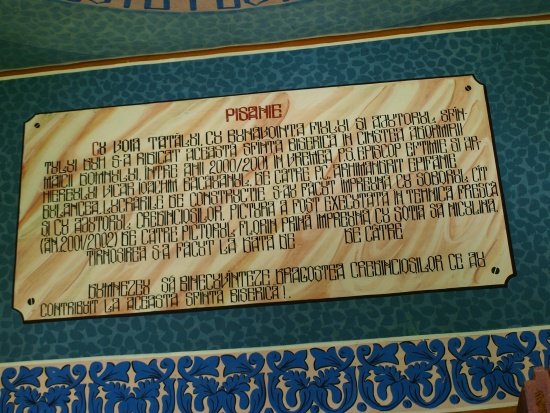 PISANIE
CU VOIA TATĂLUI, CU BUNĂVOINȚA FIULUI ȘI AJUTORUL SFÎN-
TULUI DUH S-A RIDICAT ACEASTĂ SFÎNTĂ BISERICĂ ÎN CINSTEA ADORMIRII
MAICII DOMNULUI, ÎNTRE ANII 2000/2001 ÎN VREMEA P.S. EPISCOP EFTIMIE ȘI AR-
HIEREULUI VICAR IOACHIM BĂCĂOANUL, DE CĂTRE P.C. ARHIMANDRIT EPIFANIE
BULANCEA. LUCRĂRILE DE CONSTRUCȚIE S-AU FĂCUT ÎMPREUNĂ CU SOBORUL CÎT
ȘI CU AJUTORUL CREDINCIOȘILOR. PICTURA A FOST EXECUTATĂ ÎN TEHNICA FRESCĂ
(AN.2001/2002) DE CĂTRE PICTORUL FLORIN PRIHĂ ÎMPREUNĂ CU SOȚIA SA NICULINA.
TÎRNOSIREA S-A FĂCUT LA DATA DE DE CĂTRE
DUMNEZEU SĂ BINECUVÎNTEZE DRAGOSTEA CREDINCIOȘILOR CE AU
CONTRIBUIT LA ACEASTĂ SFÎNTĂ BISERICĂ!.